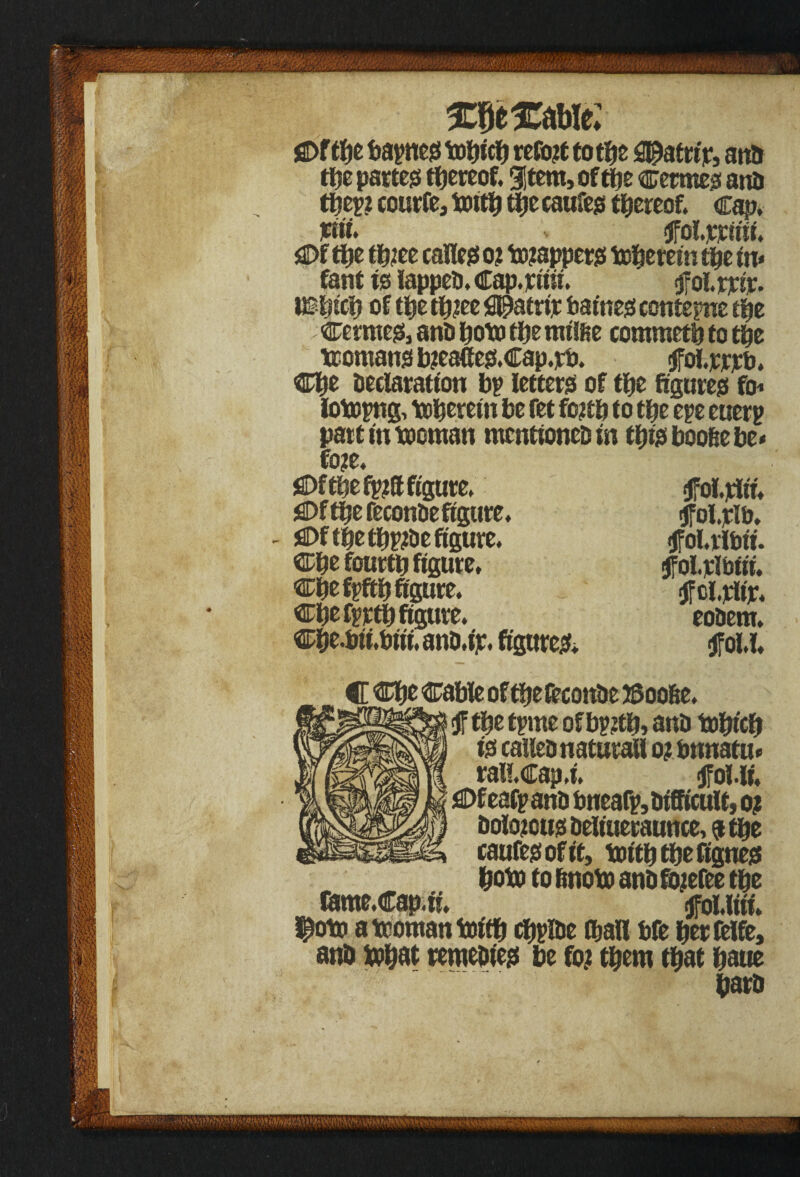 The Table.
Of the baynes which resort to the Matrix, and
the partes thereof. Item, of the Termes and
theyr course, with the causes thereof. Cap.
xiii. Fol.xxiiii.
Of the three calles or wrappers wherein the in-
fant is lapped. Cap.xiiii. Fol.xxix.
Which of the three Matrix baines conteyne the
Termes, and how the milke commeth to the
womans breastes.Cap.xv. Fol.xxxv.
The declaration by letters of the figures fo-
lowyng, wherein be set forth to the eye euery
part in woman mentioned in this booke be-
fore.
Of the fyrst figure. Fol.xlii.
Of the seconde figure. Fol.xlv.
Of the thyrde figure. Fol.xlvii.
The fourth figure. Fol.xlviii.
The fyfth figure. Fol.xlix.
The syxth figure. eodem.
The.vii.viii.and.ix. figures. Fol.l.
¶ The Table of the seconde Booke.
Of the tyme of byrth, and which
is called naturall or vnnatu-
rall.Cap.i. Fol.li.
Of easy and vneasy, difficult, or
dolorous deliueraunce, & the
causes of it, with the signes
how to know and foresee the
same.Cap.ii. Fol.liii.
How a woman with chylde shall vse her selfe,
and what remedies be for them that haue
hard